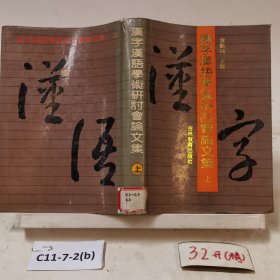 漢字漢語學術研討會論文集
上
漢語
漢字漢語學術研討會論文集 上
吉林教育出版社
字
C11-7-2(b)
32开(精)